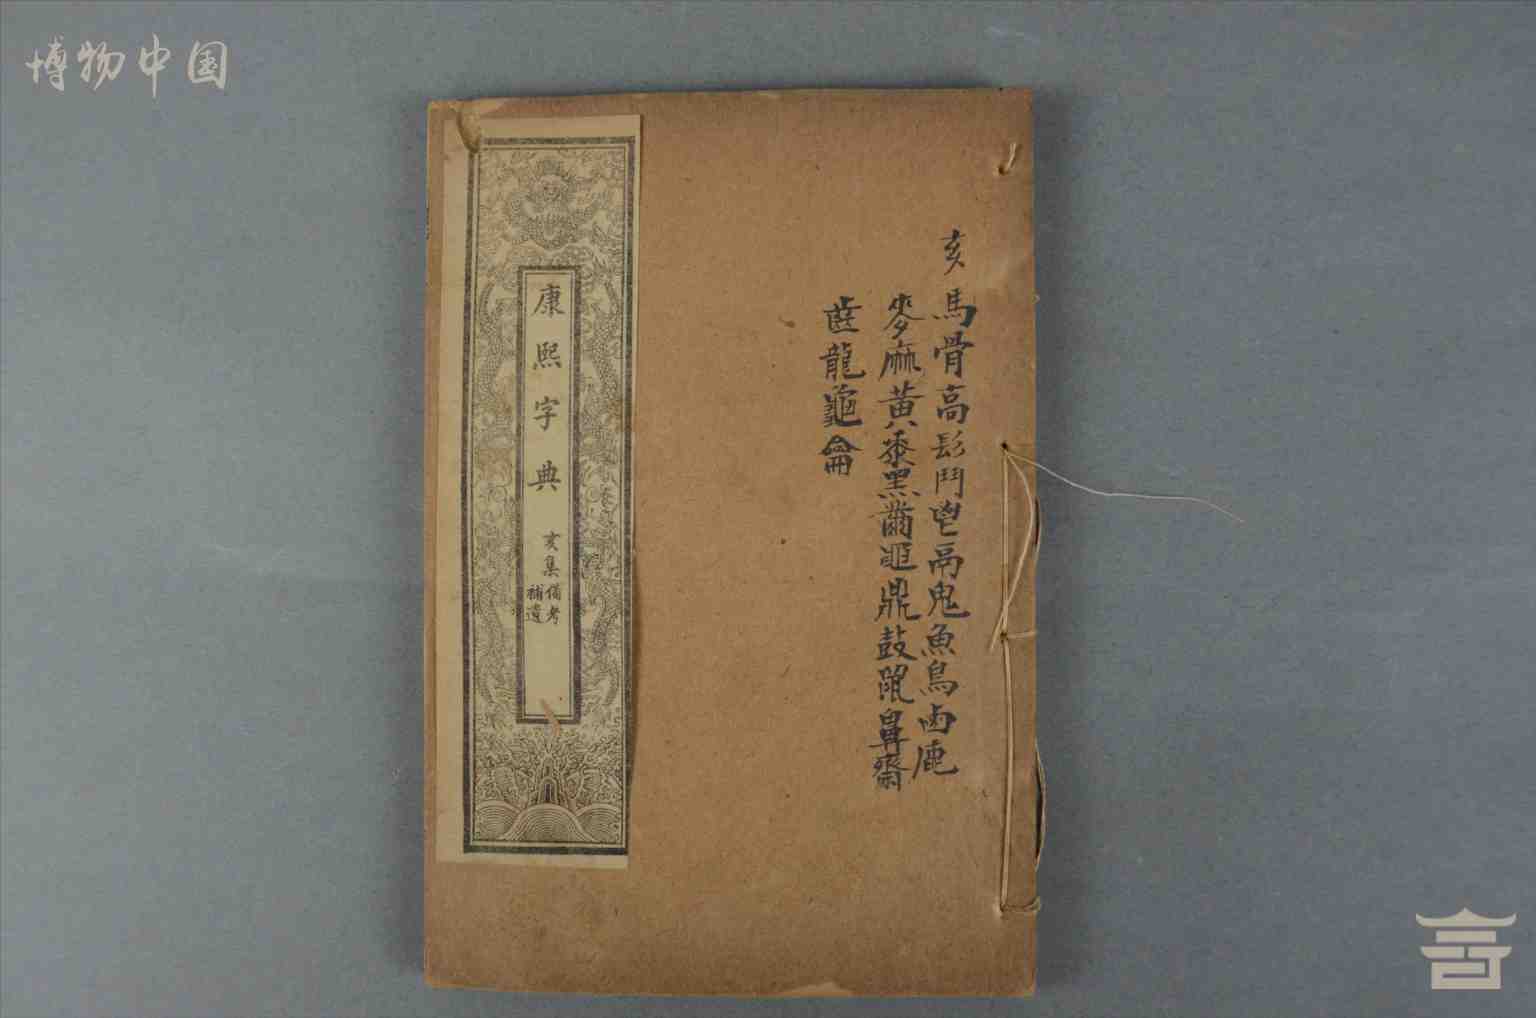 博物中国
亥
馬骨高髟鬥鬯鬲鬼魚鳥鹵鹿
麥麻黄黍黑黹黽鼎鼓鼠鼻齊
齒龍龜龠
康熙字典
亥集
備考
補遺